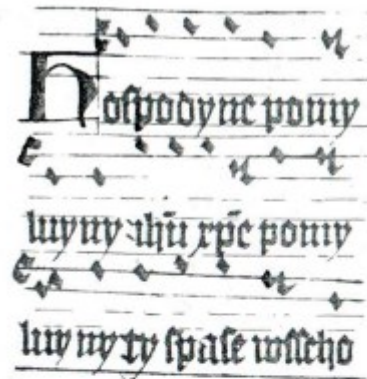 Hoſpodyne pomy
luyny ihũ xp̃e pomy
luy ny ty ſpaſe wſſeho